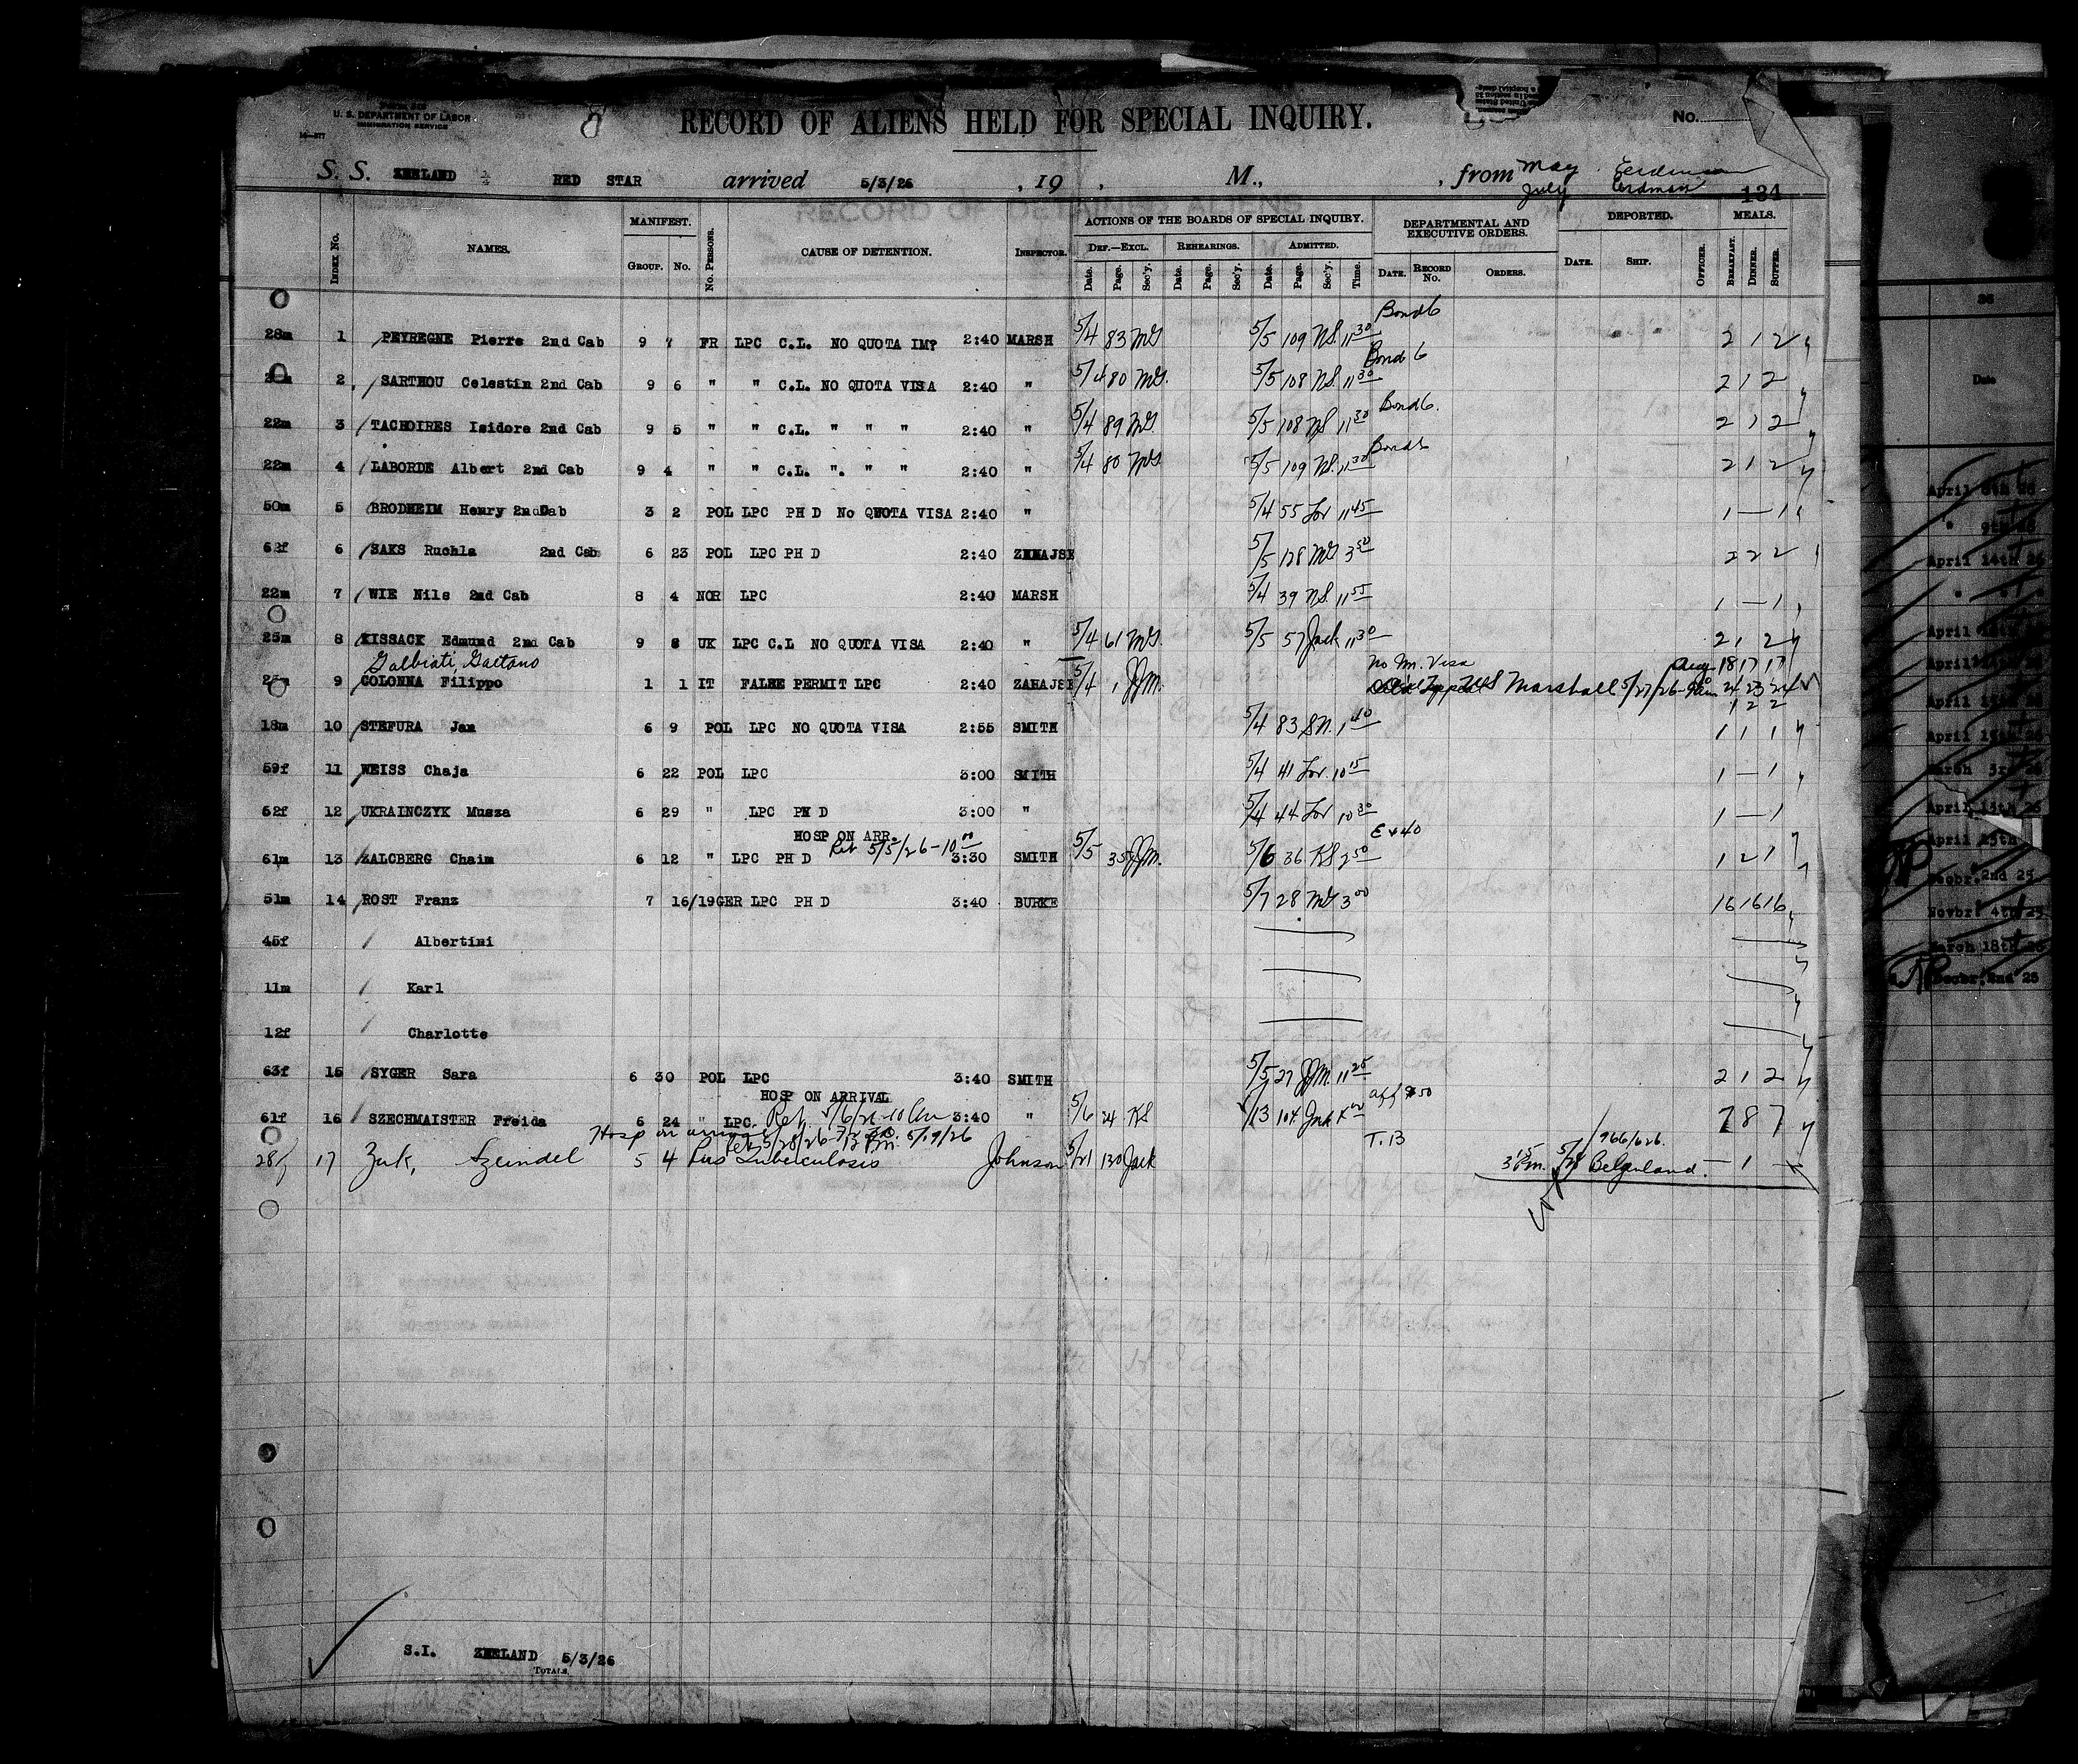 U. S. DEPARTMENT OF LABOR
IMMIGRATION SERVICE
8 RECORD OF ALIENS HELD FOR SPECIAL INQUIRY. No.
S. S. ZEELAND RED STAR arrived 5/3/26 , 19 , M., , from May
July Erdman 134
Index No. NAMES. MANIFEST. Group. No. No. Persons. CAUSE OF DETENTION. Inspector. ACTIONS OF THE BOARDS OF SPECIAL INQUIRY. DEPARTMENTAL AND EXECUTIVE ORDERS. DEPORTED. MEALS.
Def.—Excl. Rehearings. Admitted.
Date. Page. Sec'y. Date. Page. Sec'y. Date. Page. Sec'y. Time. Date. Record No. Orders. Date. Ship. Officer. Breakfast. Dinner. Supper.
Bond 6
28m 1 PEYREGNE Pierre 2nd Cab 9 7 FR LPC C.L. NO QUOTA IMP 2:40 MARSH 5/4 83 MG 5/5 109 NS. 11 30 2 1 2
Bond 6
2 SARTHOU Celestin 2nd Cab 9 6 " " C.L. NO QUOTA VISA 2:40 " 5/4 80 MG. 5/5 108 NS. 11 30 2 1 2
Bond 6.
22m 3 TACHOIRES Isidore 2nd Cab 9 5 " " C.L. " " " 2:40 " 5/4 89 MG 5/5 108 NS 11 30 2 1 2
Bond 6
22m 4 LABORDE Albert 2nd Cab 9 4 " " C.L. " " " 2:40 " 5/4 80 MG 5/5 109 NS. 11 30 2 1 2
50m 5 BRODHEIM Henry 2nd Cab 3 2 POL LPC PH D No QUOTA VISA 2:40 " 5/4 55 Lor 11 45 1 — 1
62f 6 SAKS Ruchla 2nd Cab 6 23 POL LPC PH D 2:40 5/5 128 MG 3 50 2 2 2
22m 7 WIE Nils 2nd Cab 8 4 NOR LPC 2:40 MARSH 5/4 39 NS. 11 55 1 — 1
25m 8 KISSACK Edmund 2nd Cab 9 8 UK LPC C.L NO QUOTA VISA 2:40 " 5/4 61 MG. 5/5 57 Jack 11 30 2 1 2
Galbiati, Gaetano No Im. Visa Aug 18 17 17
9 COLONNA Filippo 1 1 IT FALSE PERMIT LPC 2:40 ZAHAJSE 5/4 1 JJM. Marshall 5/27/26 24 23 24
1 2 2
18m 10 STEFURA Jan 6 9 POL LPC NO QUOTA VISA 2:55 SMITH 5/4 83 SN. 1 40 1 1 1
59f 11 WEISS Chaja 6 22 POL LPC 3:00 SMITH 5/4 41 Lor. 10 15 1 — 1
52f 12 UKRAINCZYK Musza 6 29 " LPC PH D 3:00 " 5/4 44 Lor 10 30 1 — 1
HOSP ON ARR.
61m 13 ZALCBERG Chaim 6 12 " LPC PH D Ret 5/5/26-10 00 3:30 SMITH 5/5 35 JJM. 5/6 36 KS 2 50 1 2 1
51m 14 ROST Franz 7 16/19 GER LPC PH D 3:40 BURKE 5/7 28 MG 3 00 16 16 16
45f Albertini
11m Karl
12f Charlotte
63f 15 SYGER Sara 6 30 POL LPC 3:40 SMITH 5/5 27 JJM. 11 25 2 1 2
HOSP ON ARRIVAL aff $50
61f 16 SZECHMAISTER Freida 6 24 " LPC. 3:40 " 5/6 24 KS 5/13 104 Jnk 7 8 7
Hosp on arrival 5/28/26 5/19/26 T. 13 966/626.
28f 17 Zuk, Szeindel 5 4 Pus Tuberculosis Johnson 5/21 130 Jack 3 15 Pm. 5/28 Belgenland. — 1 —
S.I. ZEELAND 5/3/26
Totals.
26
Date
April 8th 26
" 9th 26
April 14th 26
March 3rd 26
April 15th 26
April 25th
Decbr. 2nd 25
Novbr. 4th 25
March 18th 26
Decbr. 2nd 25